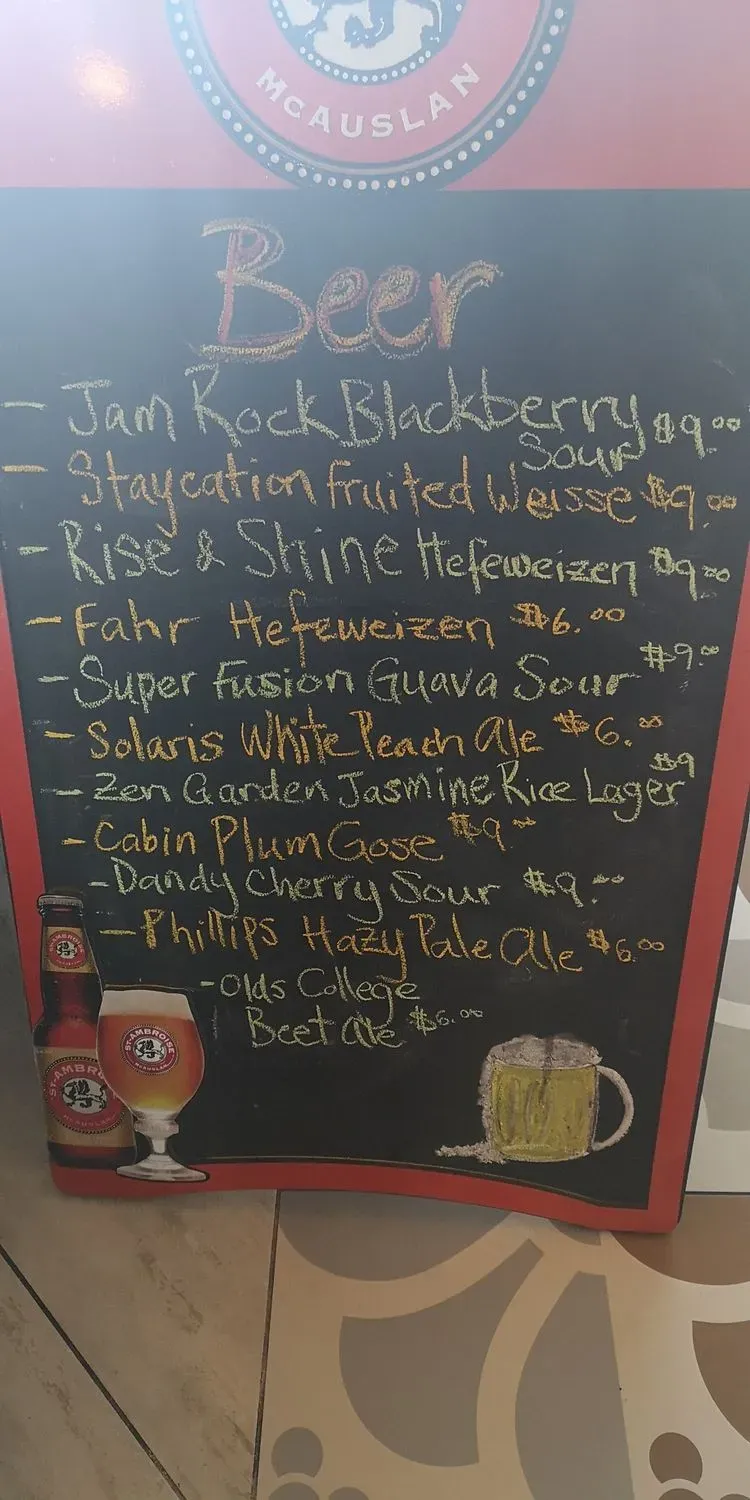 McAUSLAN
Beer
- Jam Rock Blackberry
Sour $9.00
- Staycation fruited Weisse $9.00
- Rise & Shine Hefeweizen $9.00
- Fahr Hefeweizen $6.00
- Super Fusion Guava Sour $9.00
- Solaris White Peach Ale $6.00
- Zen Garden Jasmine Rice Lager $9
- Cabin Plum Gose $9.00
- Dandy Cherry Sour $9.00
- Phillips Hazy Pale Ale $6.00
- Olds College
Beet Ale $6.00
ST-AMBROISE
ST-AMBROISE
McAUSLAN
ST-AMBROISE
McAUSLAN